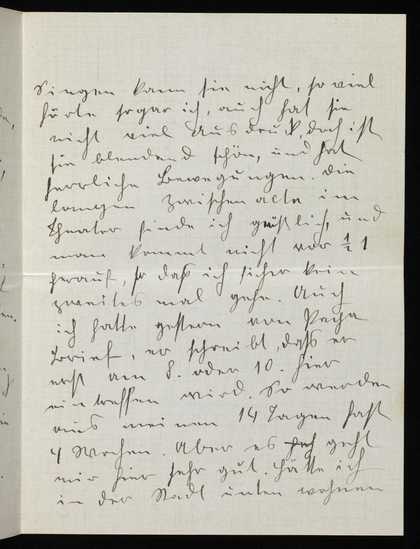 Singen kann sie nicht, so viel
hörte sogar ich, auch hat sie
nicht viel Ausdruck, doch ist
sie blendend schön, und hat
herrliche Bewegungen. Die
langen Zwischenakte im
Theater finde ich gräßlich, und
man kommt nicht vor ½ 1
herauf, so daß ich sicher kein
zweites mal gehe. Auch
ich hatte gestern von
Brief, er schreibt, dass er
erst am 8. oder 10. hier
eintreffen wird. So werden
aus meinen 14 Tagen fast
4 Wochen. Aber es geht
mir hier sehr gut. Hätte ich
in der Stadt unten wohnen